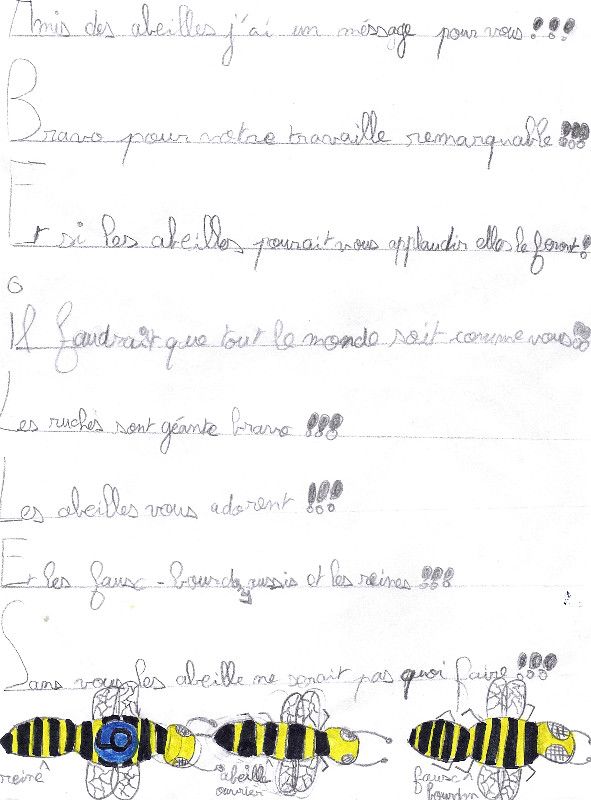 Amis des abeilles j'ai un méssage pour vous !!!
Bravo pour votre travaille remarquable !!!
Et si les abeilles pourait vous applaudir elles le feront !
Il faudrait que tout le monde soit comme vous !!
Les ruches sont géante bravo !!!
Les abeilles vous adorent !!!
Et les faux-bourdon aussis et les reines !!!
Sans vous les abeille ne sorait pas quoi faire !!!
6
reine
abeille
ouvrier
faux
bourdon